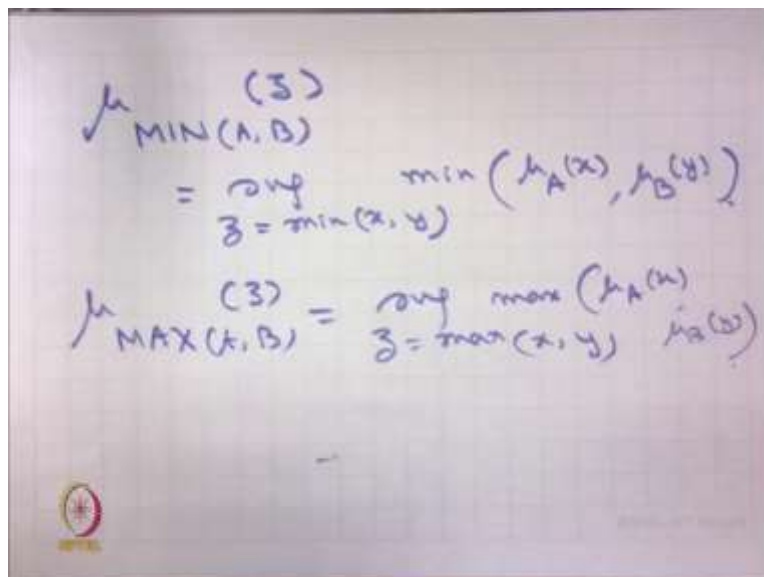 μ_MIN(A,B) (z)
= sup_{z = min(x, y)} min(μ_A(x), μ_B(y))
μ_MAX(A,B) (z) = sup_{z = max(x, y)} max(μ_A(x) μ_B(y))
NPTEL